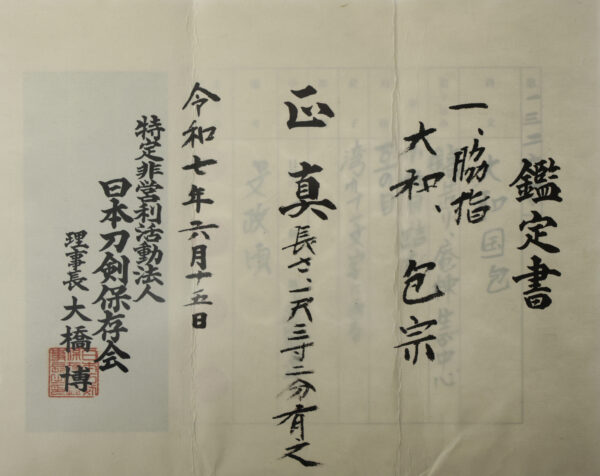 鑑定書
一、脇指
大和、包宗
正真長さ、一尺三寸二分有之
令和七年六月十五日
特定非営利活動法人
日本刀剣保存会
理事長 大橋 博